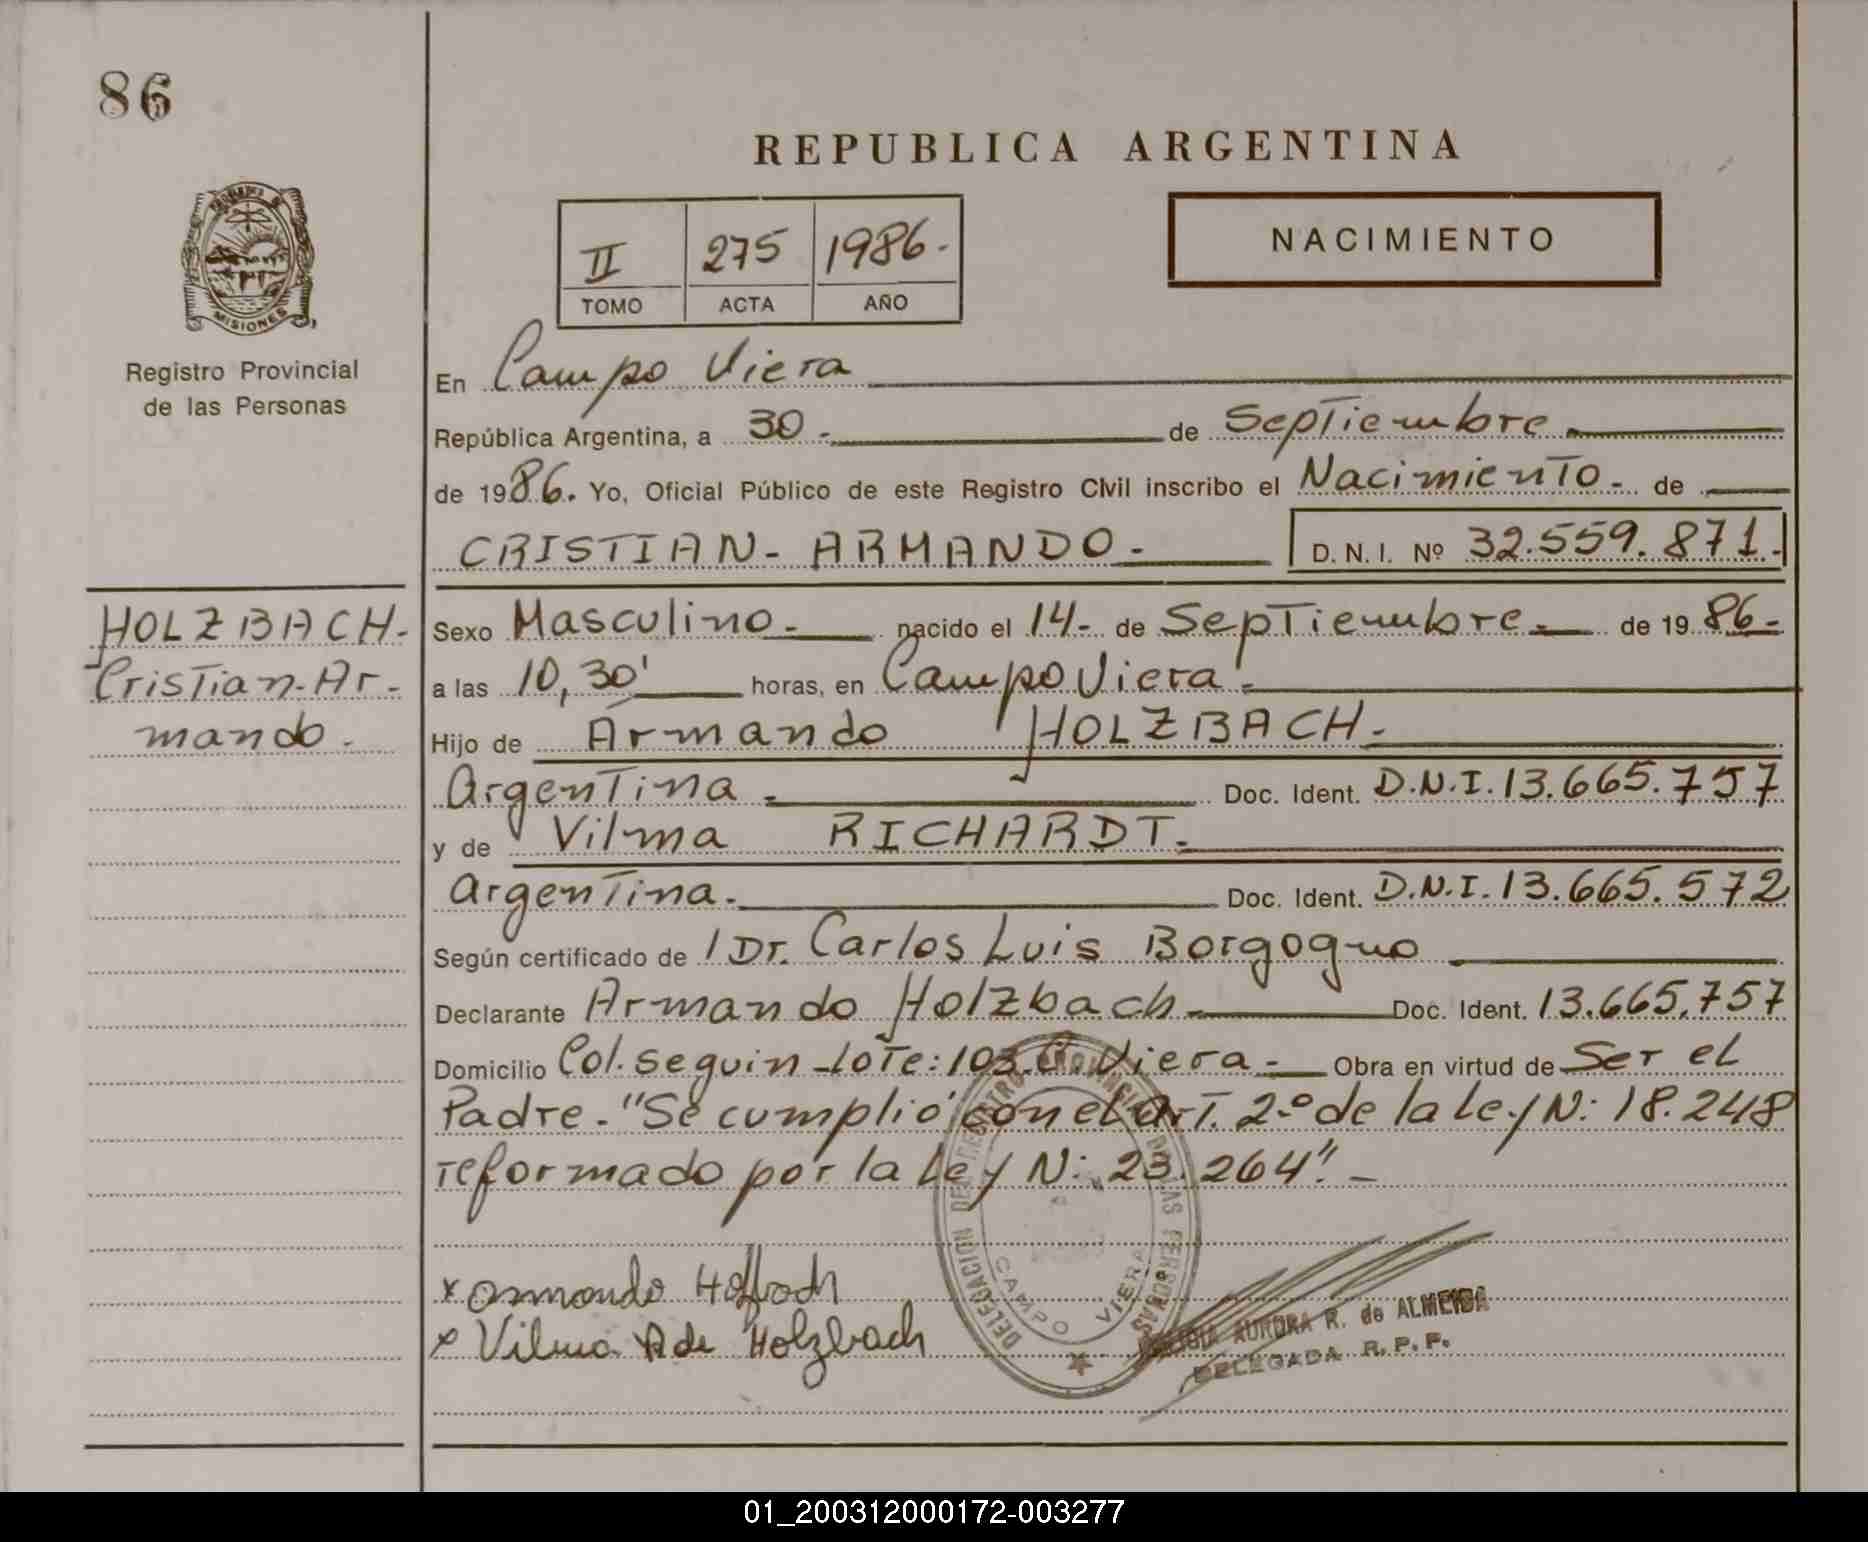 86
REPUBLICA ARGENTINA
II 275 1986.-
TOMO ACTA AÑO
NACIMIENTO
MISIONES
Registro Provincial
de las Personas
En Campo Viera
República Argentina, a 30.- de Septiembre
de 1986. Yo, Oficial Público de este Registro Civil inscribo el Nacimiento.- de
CRISTIAN-ARMANDO.- D.N.I. Nº 32.559.871.-
HOLZBACH.-
Cristian-Ar-
mando.-
Sexo Masculino.- nacido el 14.- de Septiembre.- de 1986.-
a las 10,30' horas, en Campo Viera.-
Hijo de Armando HOLZBACH.-
Argentina.- Doc. Ident. D.N.I.13.665.757
y de Vilma RICHARDT.-
Argentina.- Doc. Ident. D.N.I.13.665.572
Según certificado de / Dr. Carlos Luis Borgogno
Declarante Armando Holzbach.- Doc. Ident. 13.665.757
Domicilio Col. seguin-lote: 103.C. Viera.- Obra en virtud de Ser el
Padre.-"Se cumplió con el art. 2º de la Ley N: 18.248
reformado por la Ley N: 23.264".-
x Armando Holzbach
x Vilma R de Holzbach
DELEGACION DEL REGISTRO PROVINCIAL DE LAS PERSONAS
CAMPO VIERA
AURORA R. de ALMEIDA
DELEGADA R.P.P.
01_200312000172-003277